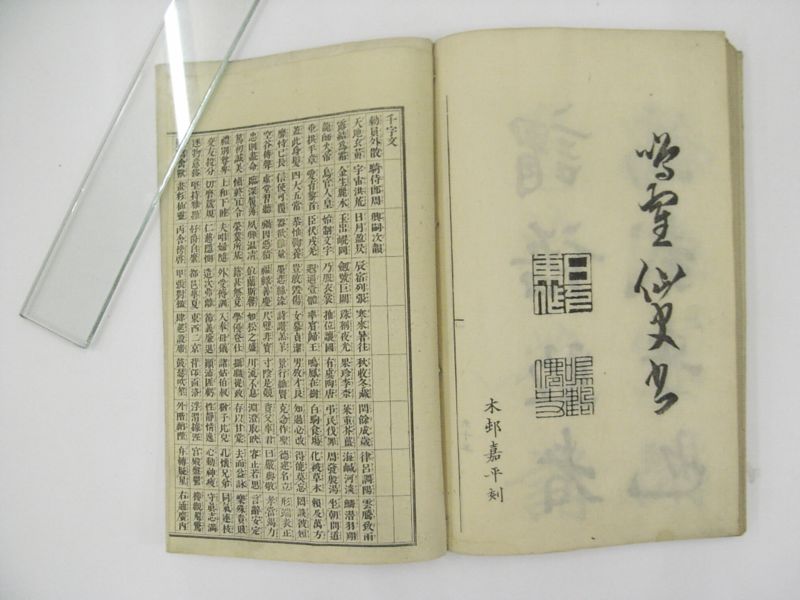 鳴鶴仙史書
木邨嘉平刻
千字文
勅員外散 騎侍郎周 興嗣次韻
天地玄黃 宇宙洪荒 日月盈昃 辰宿列張 寒來暑往 秋收冬藏 閏餘成歲 律呂調陽 雲騰致雨
露結爲霜 金生麗水 玉出崐岡 劍號巨闕 珠稱夜光 果珍李柰 菜重芥薑 海鹹河淡 鱗潛羽翔
龍師火帝 鳥官人皇 始制文字 乃服衣裳 推位讓國 有虞陶唐 弔民伐罪 周發殷湯 坐朝問道
垂拱平章 愛育黎首 臣伏戎羌 遐邇壹體 率賓歸王 鳴鳳在樹 白駒食場 化被草木 賴及萬方
蓋此身髮 四大五常 恭惟鞠養 豈敢毀傷 女慕貞潔 男效才良 知過必改 得能莫忘 罔談彼短
靡恃己長 信使可覆 器欲難量 墨悲絲染 詩讚羔羊 景行維賢 克念作聖 德建名立 形端表正
空谷傳聲 虛堂習聽 禍因惡積 福緣善慶 尺璧非寶 寸陰是競 資父事君 曰嚴與敬 孝當竭力
忠則盡命 臨深履薄 夙興溫凊 似蘭斯馨 如松之盛 川流不息 淵澄取映 容止若思 言辭安定
篤初誠美 慎終宜令 榮業所基 籍甚無竟 學優登仕 攝職從政 存以甘棠 去而益詠 樂殊貴賤
禮別尊卑 上和下睦 夫唱婦隨 外受傅訓 入奉母儀 諸姑伯叔 猶子比兒 孔懷兄弟 同氣連枝
交友投分 切磨箴規 仁慈隱惻 造次弗離 節義廉退 顛沛匪虧 性靜情逸 心動神疲 守眞志滿
逐物意移 堅持雅操 好爵自縻 都邑華夏 東西二京 背邙面洛 浮渭據涇 宮殿盤鬱 樓觀飛驚
禽獸 畫彩仙靈 丙舍傍啓 甲帳對楹 肆筵設席 鼓瑟吹笙 升階納陛 弁轉疑星 右通廣內